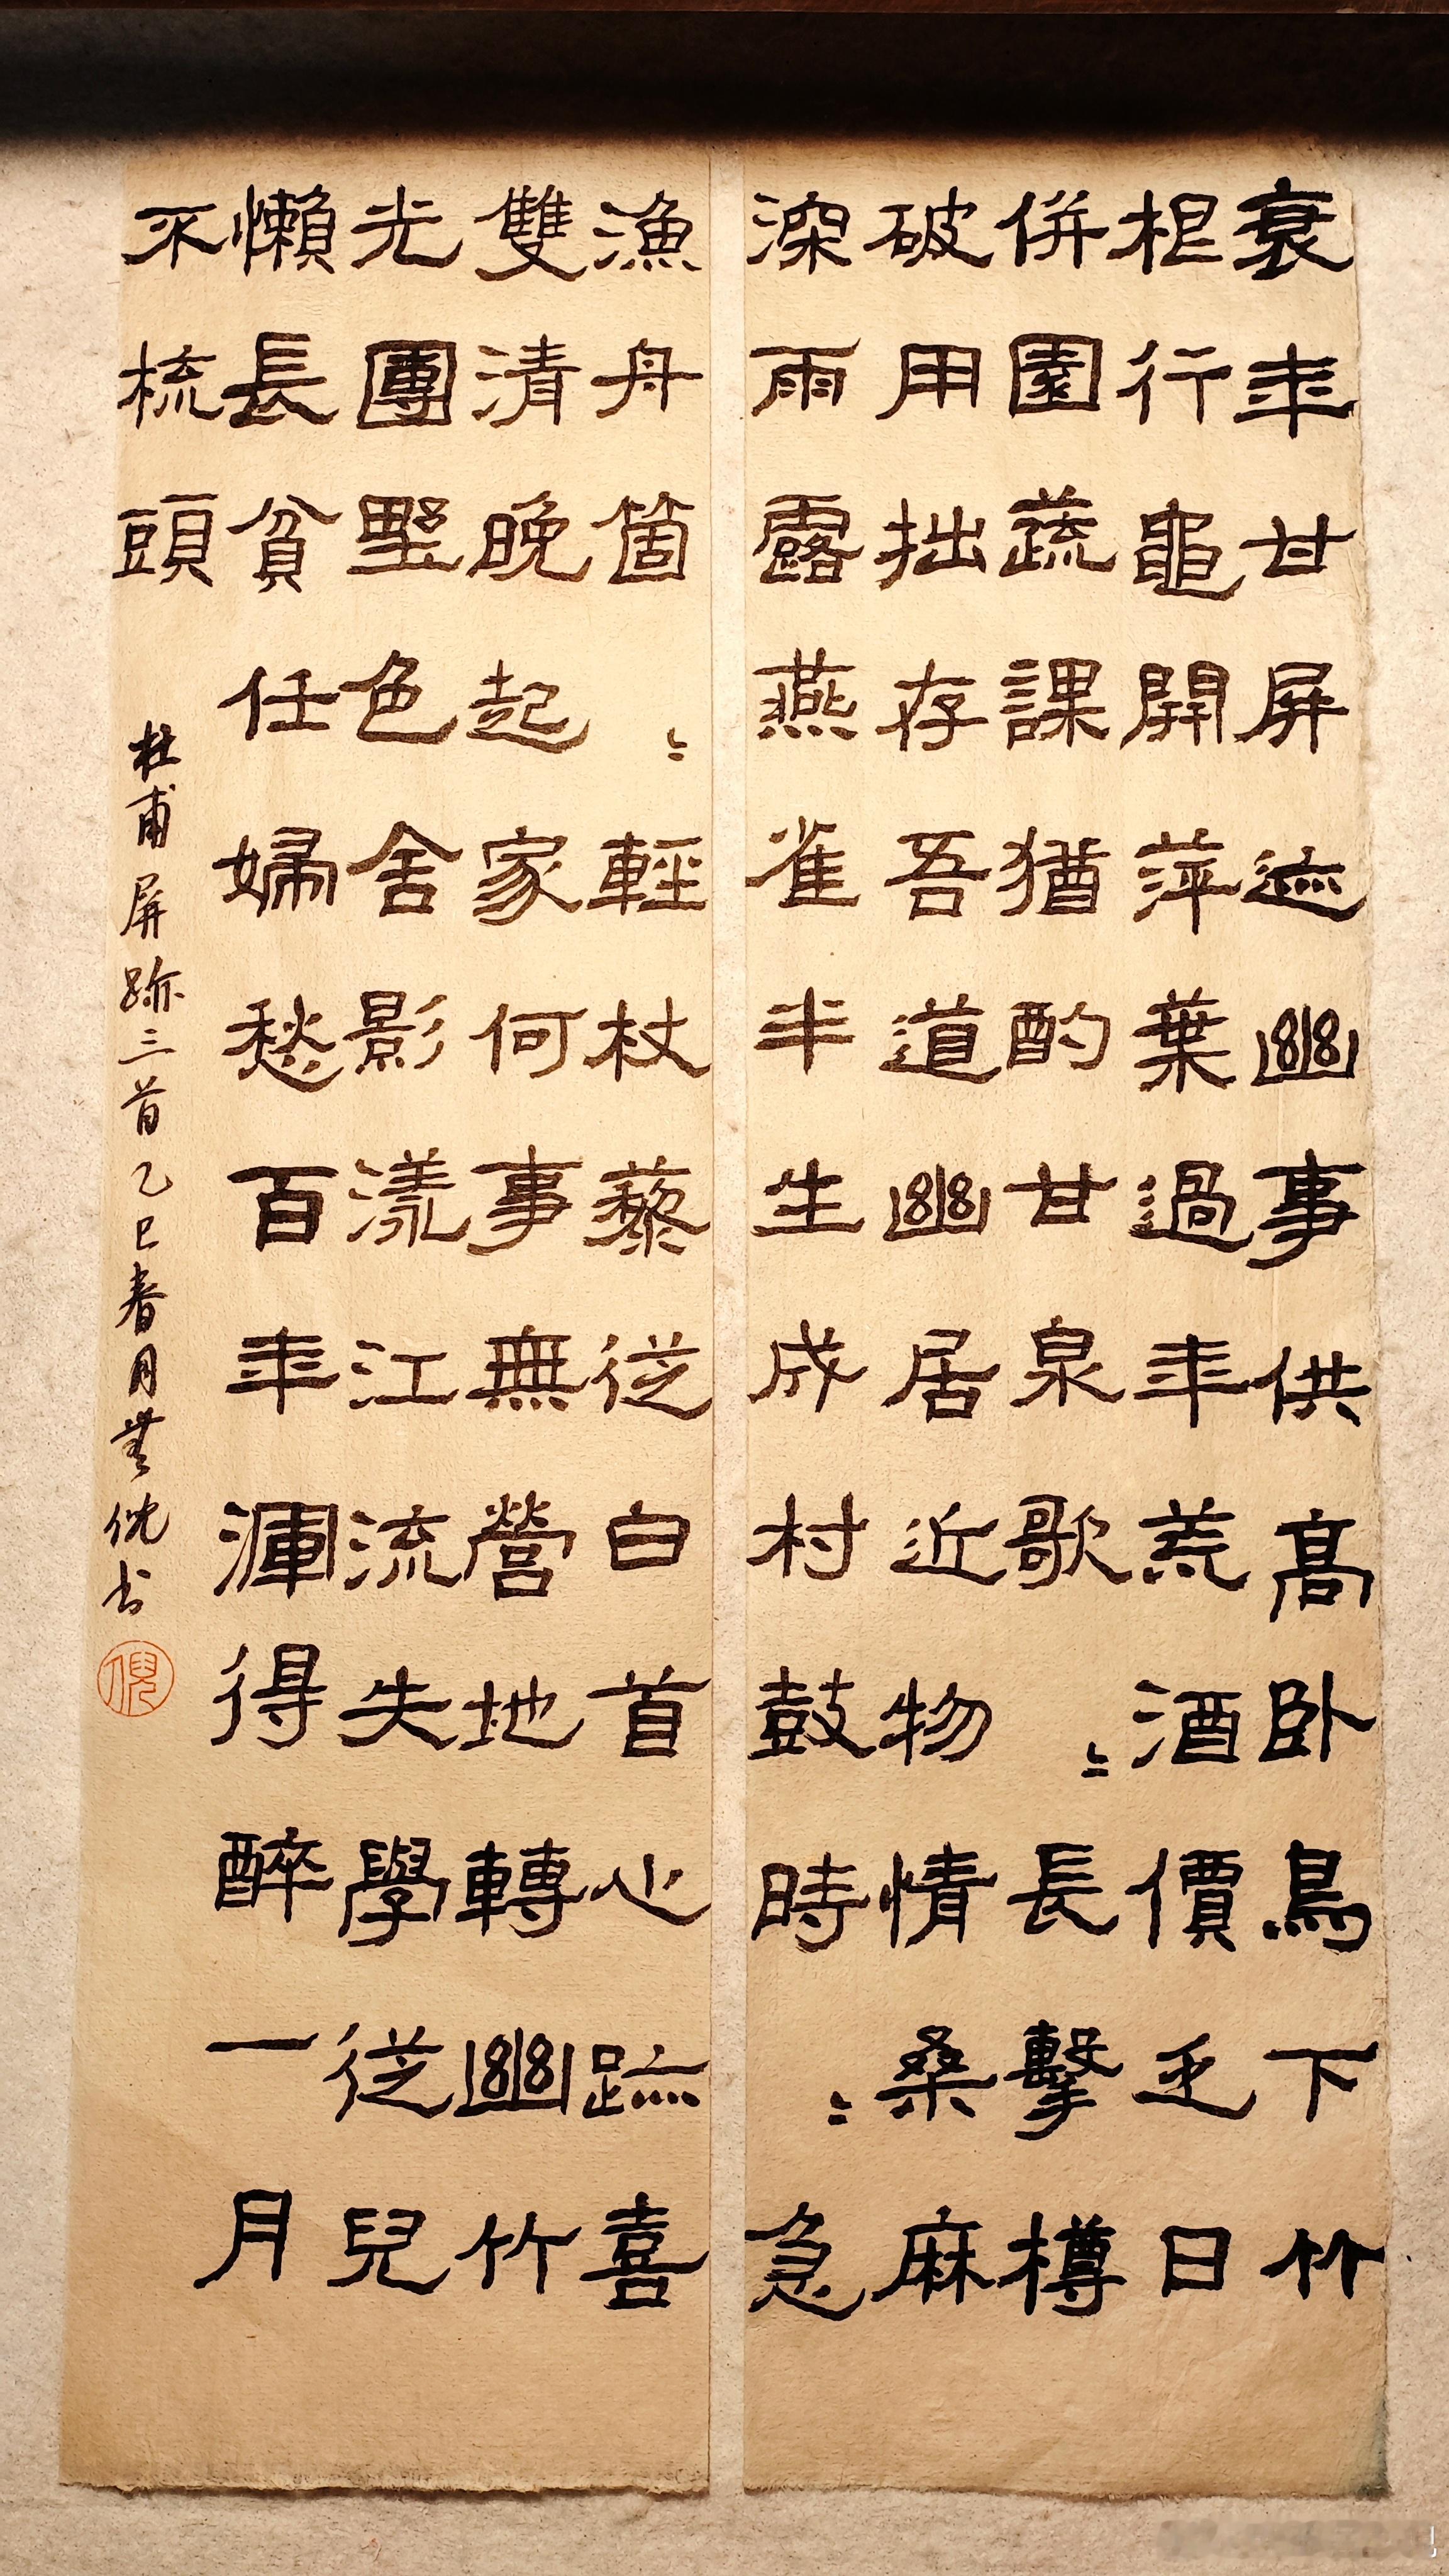 衰年甘屏迹幽事供高卧鳥下竹
根行龜開萍葉過年荒酒價乏日
併園蔬課猶酌甘泉歌〻長擊樽
破用拙存吾道幽居近物情桑麻
深雨露燕雀半生成村鼓時〻急
漁舟箇〻輕杖藜從白首心跡喜
雙清晚起家何事無營地轉幽竹
光團墅色舍影漾江流失學從兒
懶長貧任婦愁百年渾得醉一月
不梳頭
杜甫屏跡三首乙巳春月倪书
倪